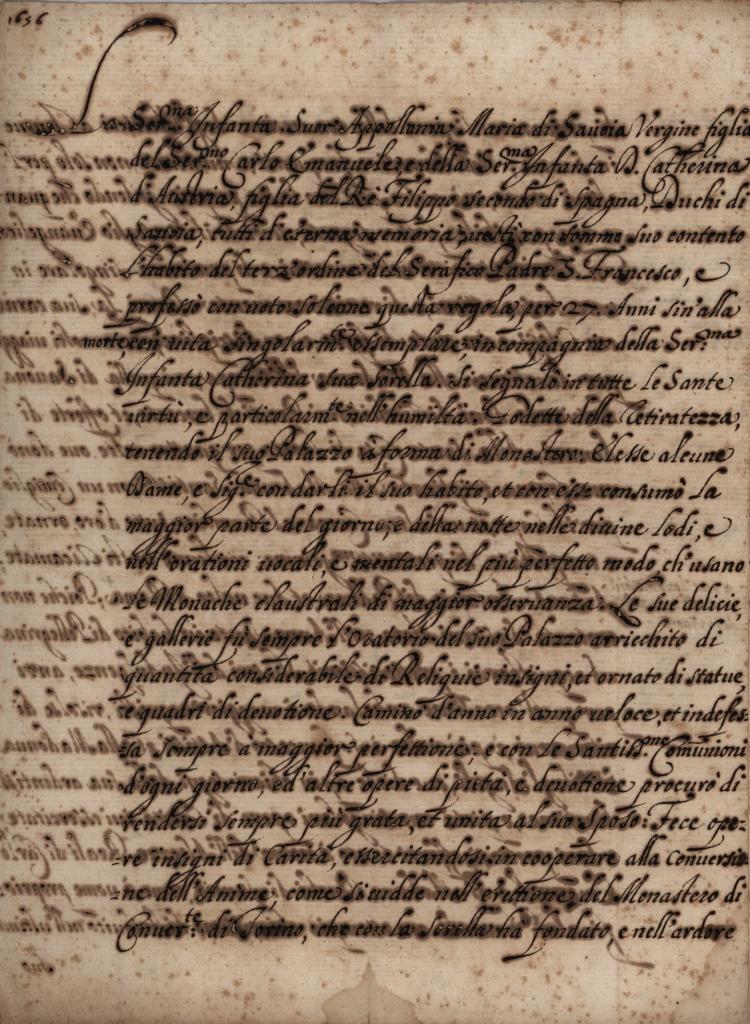 1656
La Ser.ma Infanta Suor Appollonia Maria di Sauoia Vergine figlia
del Ser.mo Carlo Emanuele, e della Ser.ma Infanta D. Catherina
d'Austria, figlia del Re Filippo secondo di Spagna, Duchi di
Sauoia, tutti d'eterna memoria, uestì con sommo suo contento
l'habito del terz'ordine del Serafico Padre S. Francesco, e
professò con uoto solenne questa regola per 27. Anni sin'alla
morte, con uita singolarm.te essemplare, in compagnia della Ser.ma
Infanta Catherina sua sorella. Si segnalò in tutte le Sante
uirtù, e particolarm.te nell'humiltà. Godette della retiratezza,
tenendo il suo Palazzo à forma di Monastero: Elesse alcune
Dame, e Sig.re con darli il suo habito, et con esse consumò la
maggior parte del giorno, e della notte nelle diuine lodi, e
nell'orationi uocali, e mentali nel più perfetto modo, ch'usano
le Monache claustrali di maggior osseruanza. Le sue delicie,
e gallerie fù sempre l'Oratorio del suo Palazzo arricchito di
quantità considerabile di Reliquie insigni, et ornato di statue,
e quadri di deuotione. Caminò d'anno in anno ueloce, et indefes-
sa sempre a maggior perfettione; e con le Santiss.me Comunioni
d'ogni giorno, ed'altre opere di pietà, e deuotione procurò di
rendersi sempre più grata, et unita al suo Sposo: Fece ope-
-re insigni di Carità, essercitandosi in cooperare alla Conuersio-
-ne dell'Anime, come si uidde nell'erettione del Monastero di
Conuer.te di Torino, che con la Sorella hà fondato, e nell'ardore